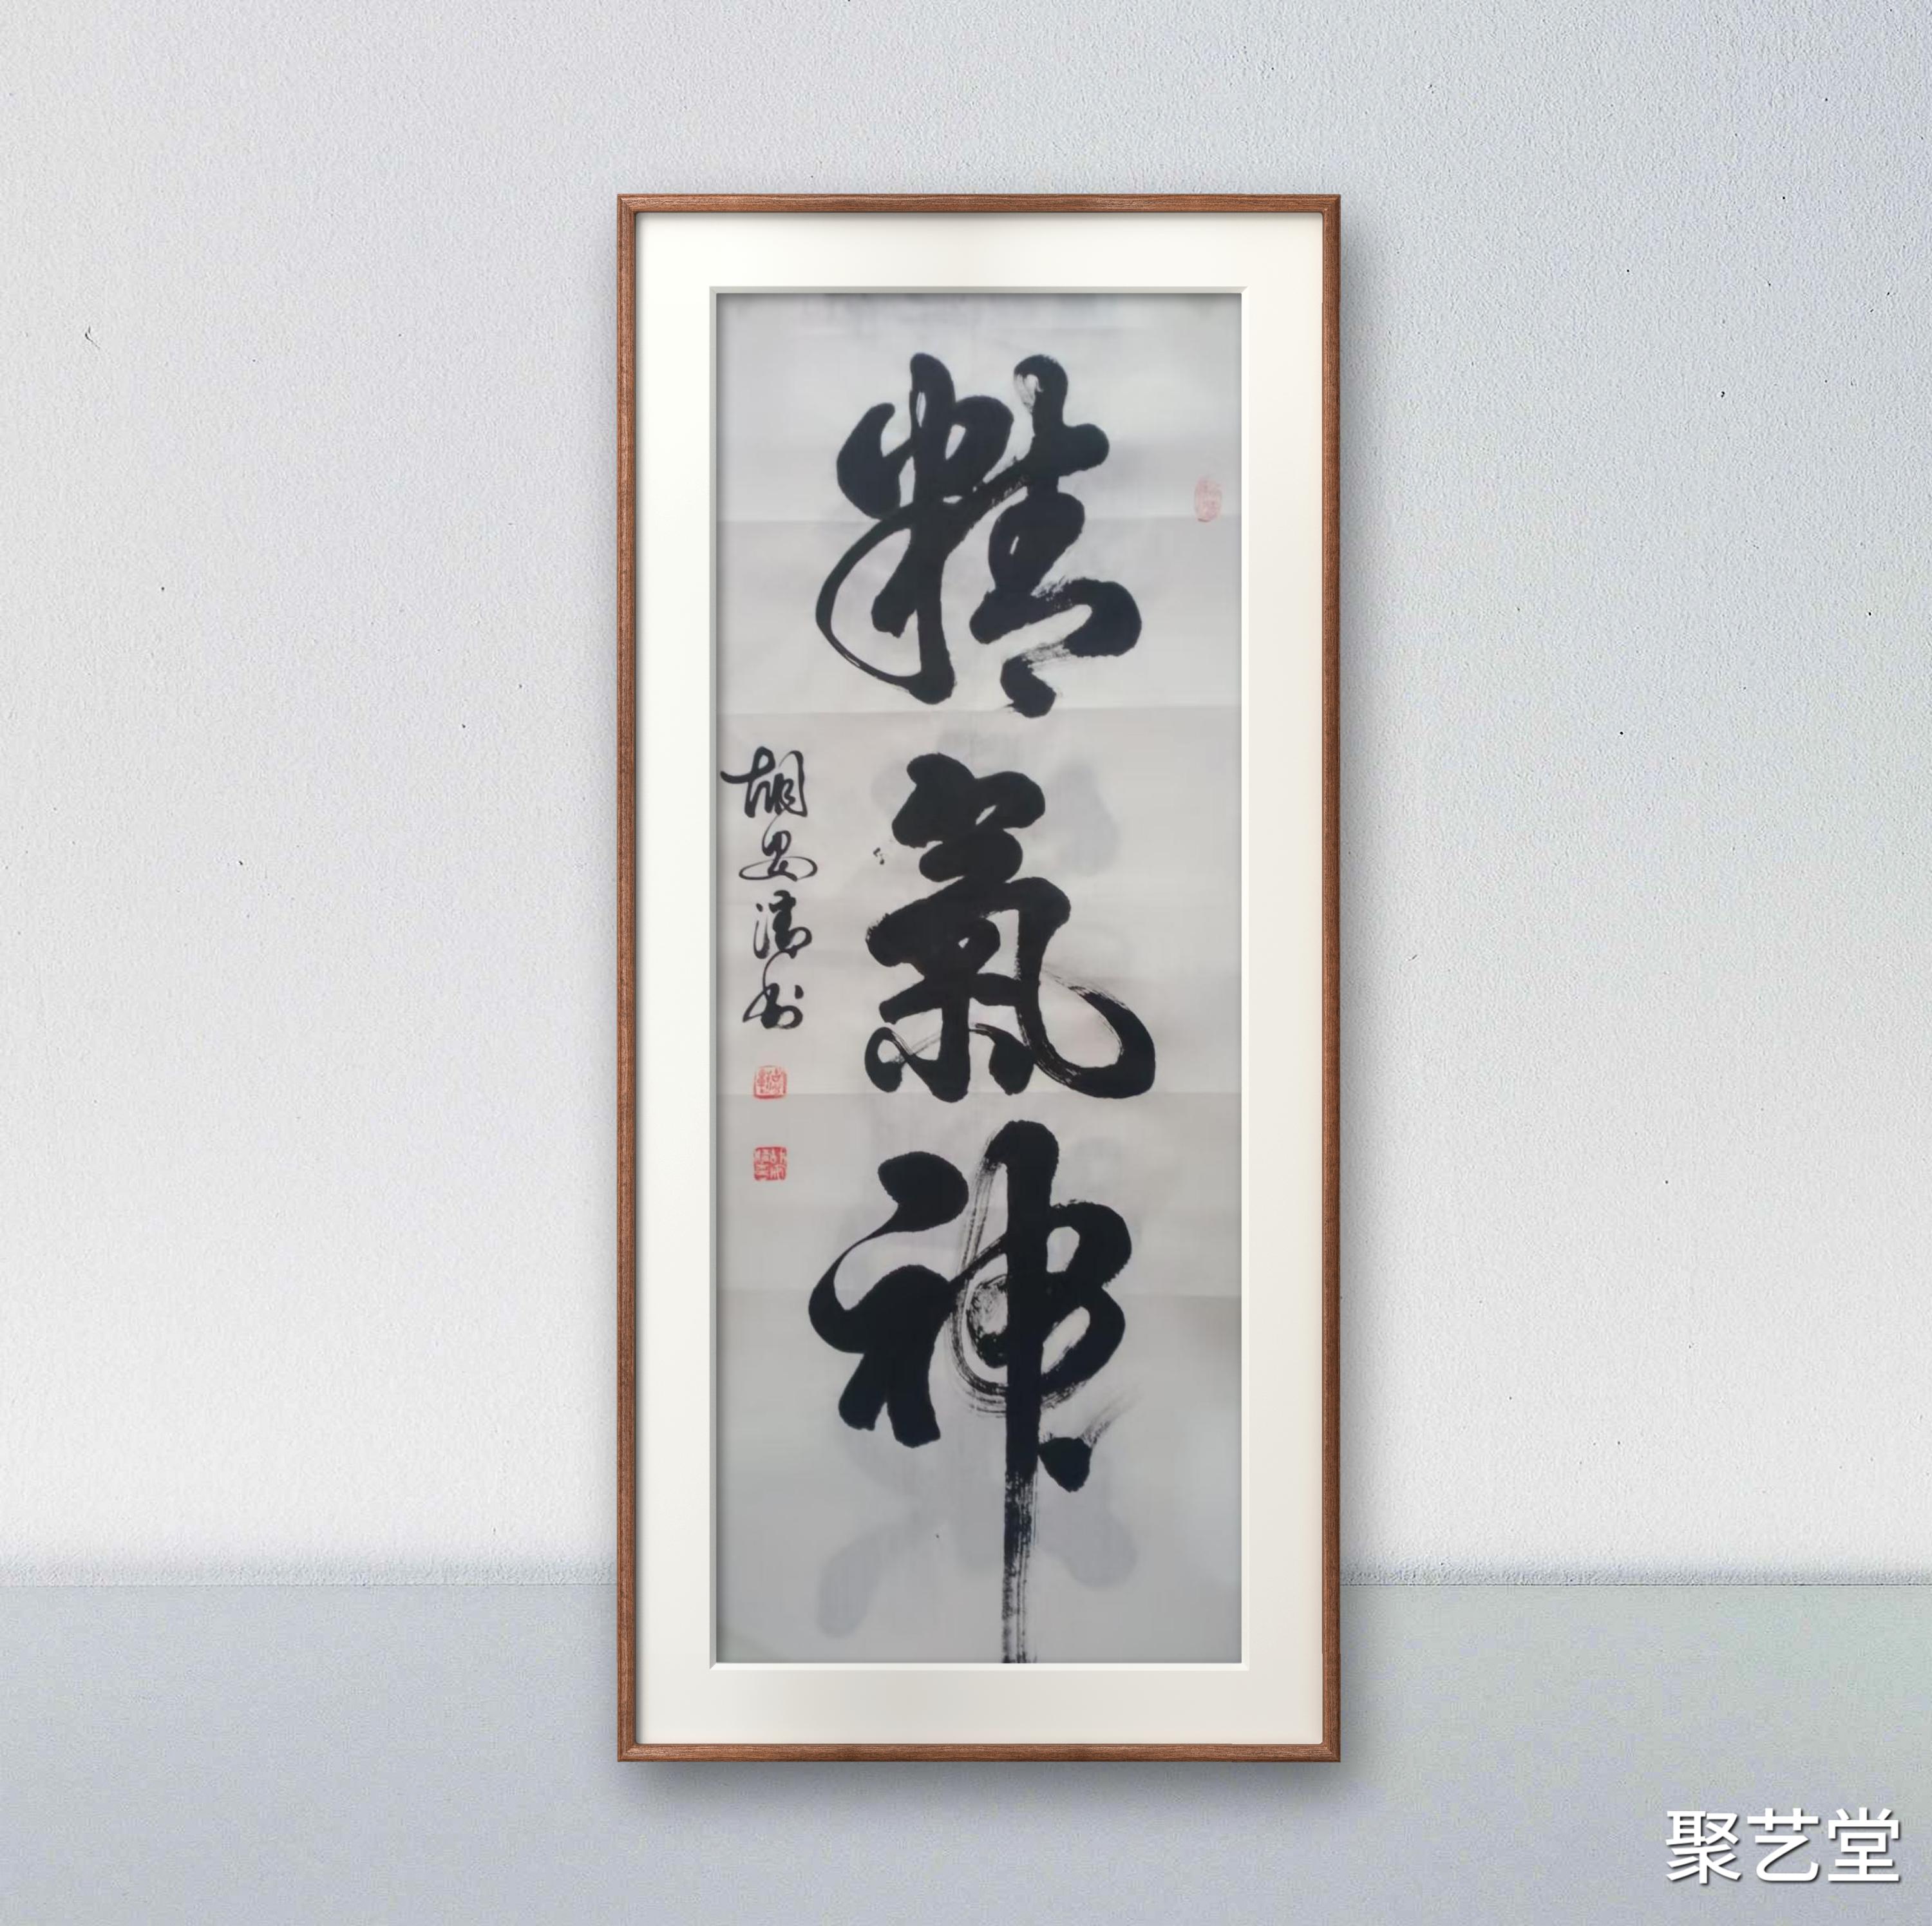 精氣神
胡安清书
聚艺堂